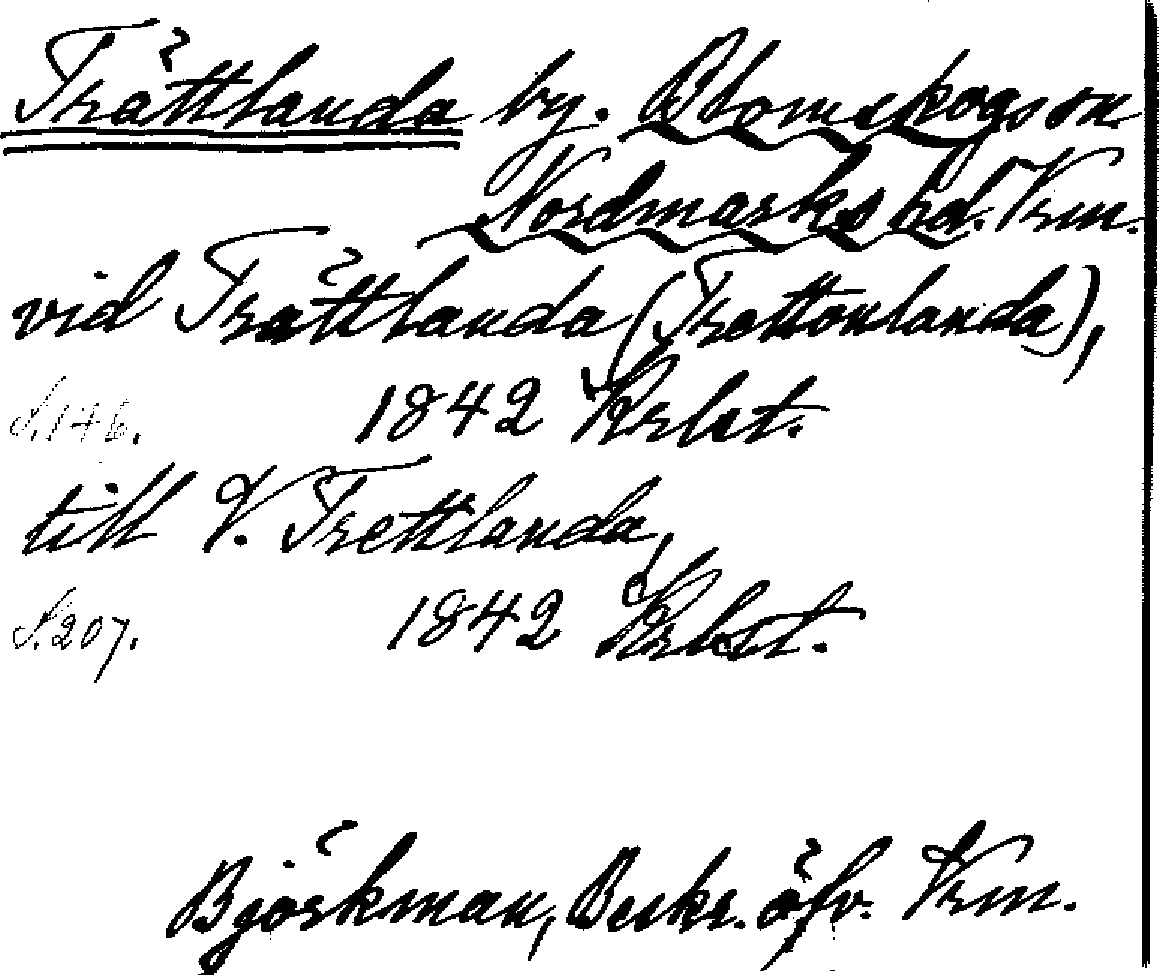 Trättlanda by. Blomskogs sn.
Nordmarks hd. Vrm.
vid Trättlanda (Trettonlanda),
S. 146. 1842 Krbst.
till V. Trettlanda,
S. 207. 1842 Krbst.
Björkman, Beskr. öfv. Vrm.